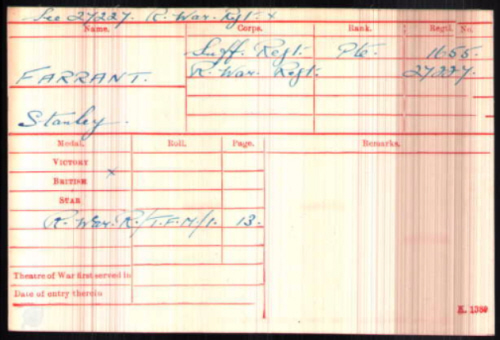 See 27227. R. War. Regt. x
Name. Corps. Rank. Regtl. No.
Suff. Regt. Pte. 1655.
FARRANT. R. War. Regt. 27227.
Stanley.
Medal. Roll. Page. Remarks.
VICTORY
BRITISH x
STAR
R. War. R/T.F.M/1. 13.
Theatre of War first served in
Date of entry therein
K. 1380